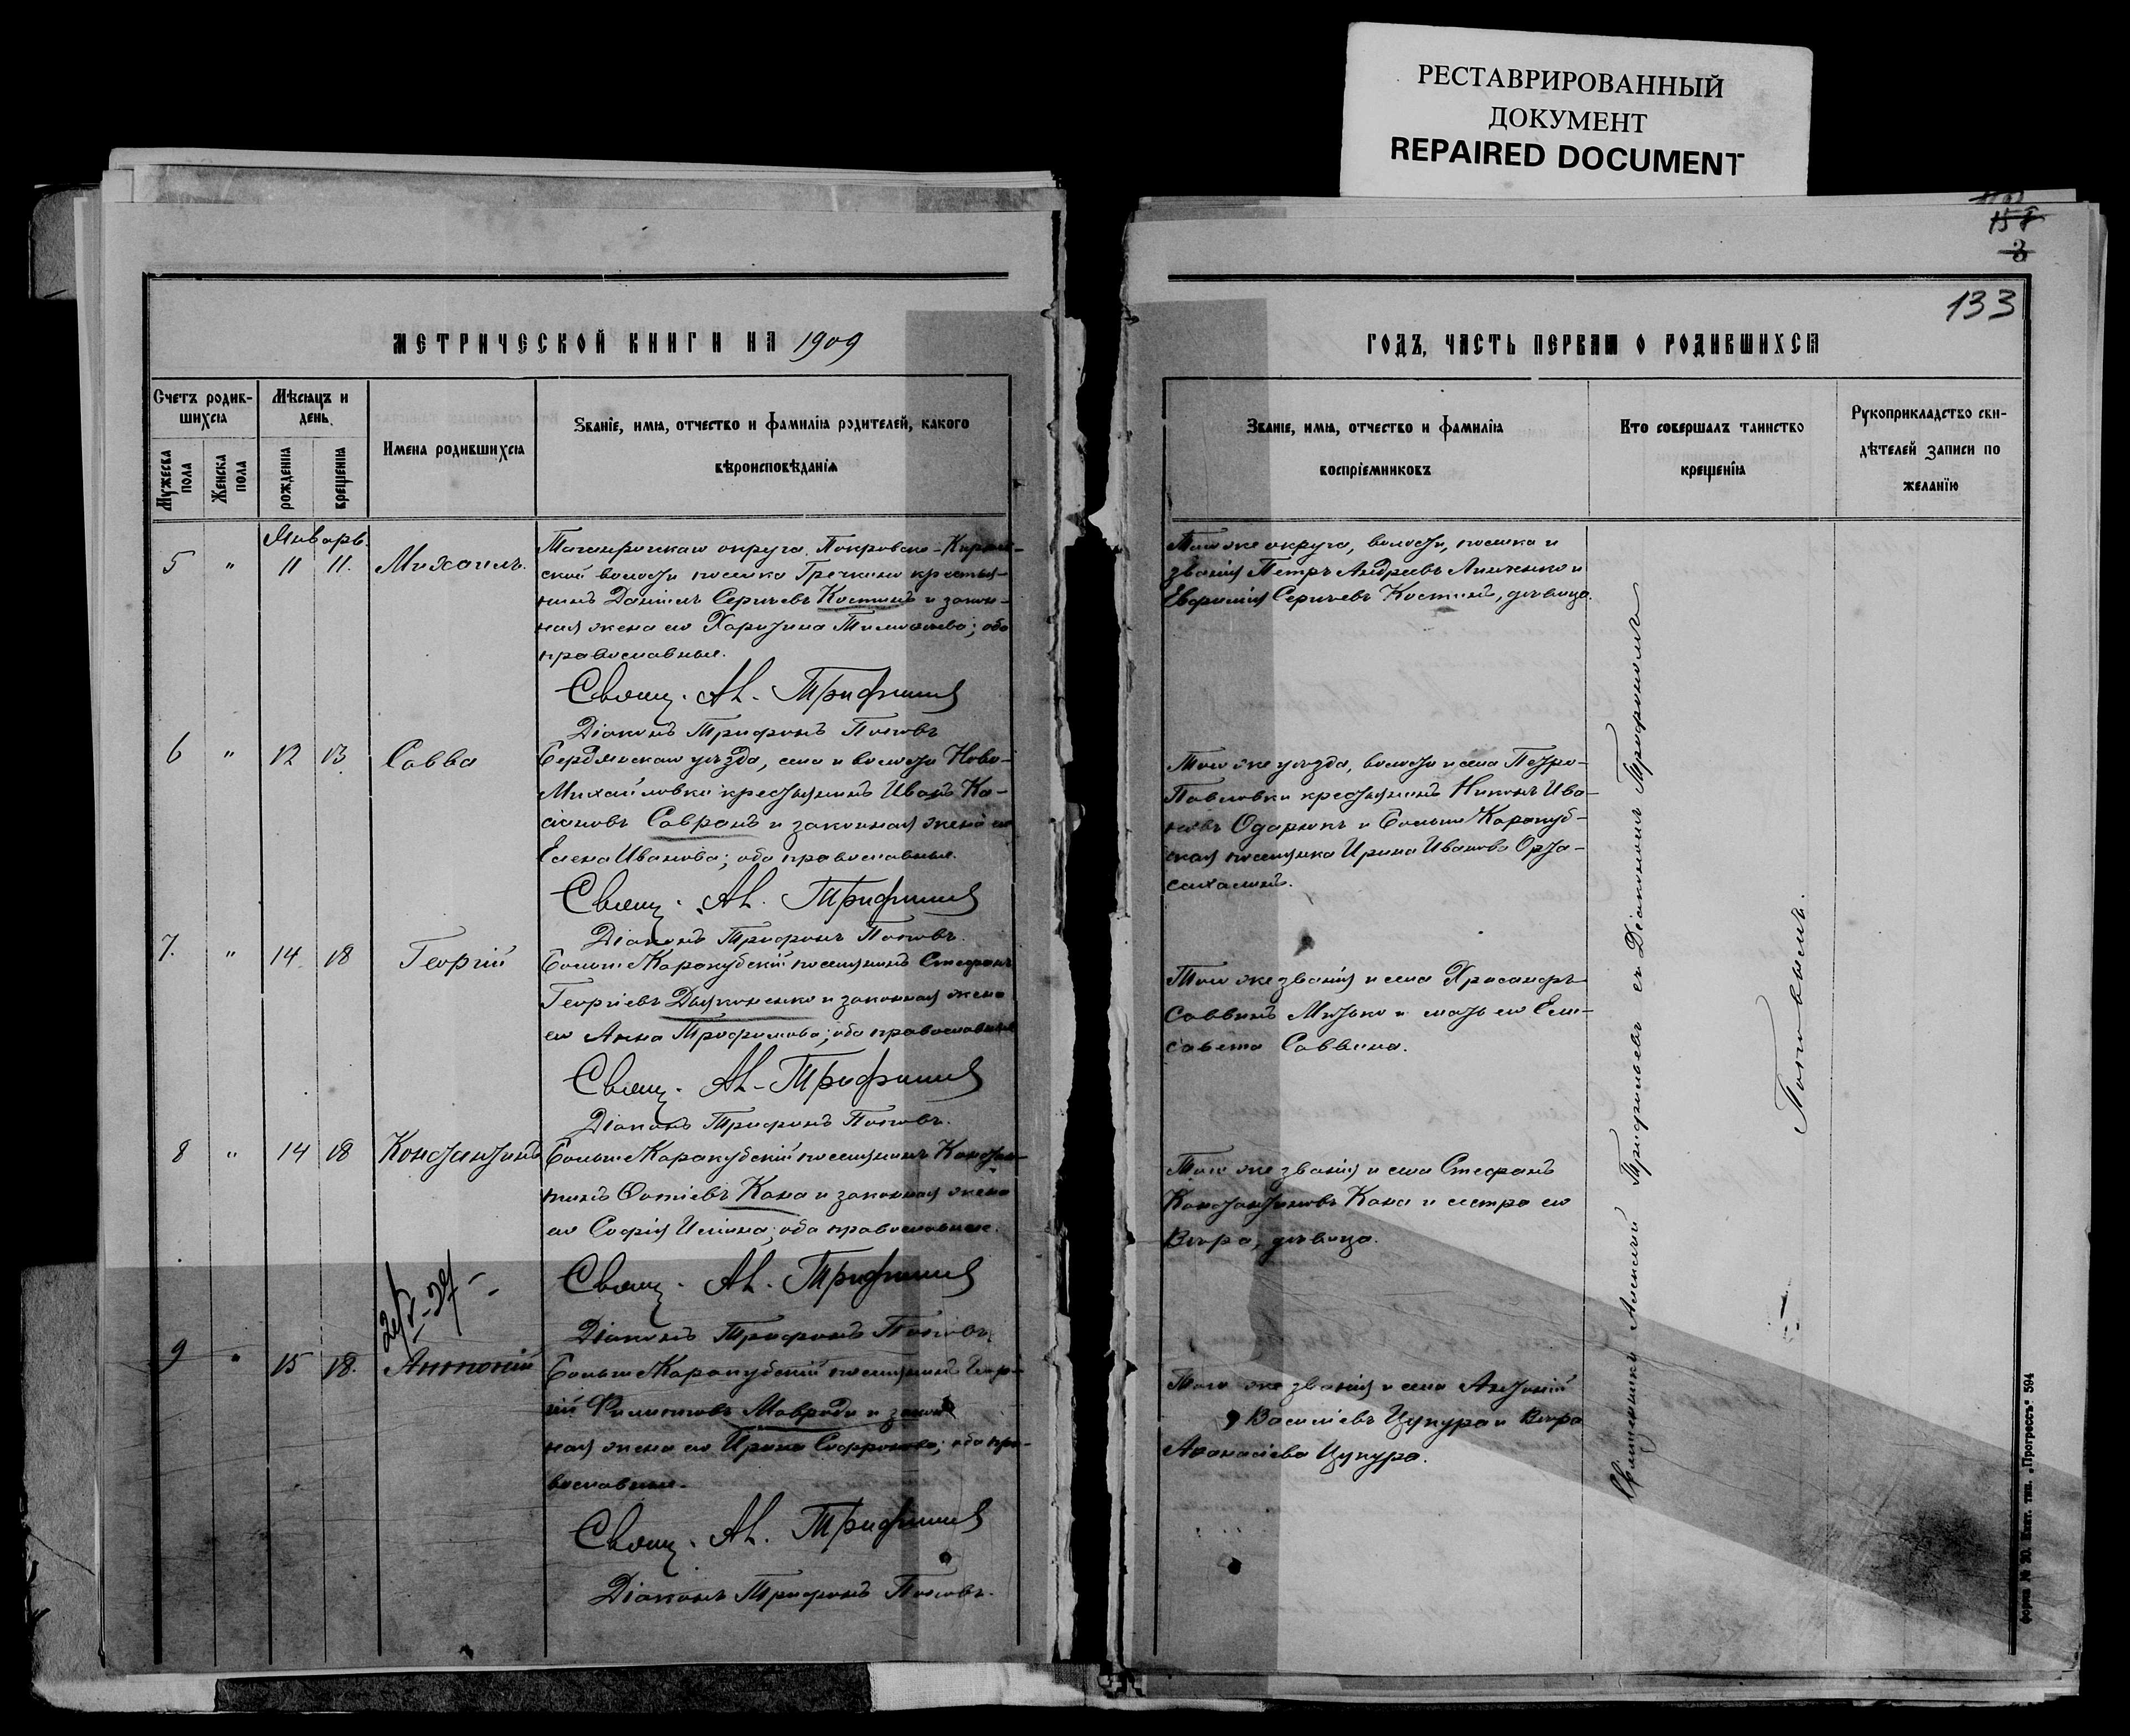 РЕСТАВРИРОВАННЫЙ
ДОКУМЕНТ
REPAIRED DOCUMENT
133
МЕТРИЧЕСКОЙ КНИГИ НА 1909
ГОДЪ, ЧАСТЬ ПЕРВАЯ О РОДИВШИХСЯ
Счетъ родив-
шихся
Мужеска пола
Женска пола
Мѣсяцъ и
день
рожденія
крещенія
Имена родившихся
Званіе, имя, отчество и фамилія родителей, какого
вѣроисповѣданія
Званіе, имя, отчество и фамилія
воспріемниковъ
Кто совершалъ таинство
крещенія
Рукоприкладство сви-
дѣтелей записи по
желанію
Январь.
5 " 11 11. Михаилъ.
Таганрогскаго округа, Покровско-Кирѣев-
ской волости поселка Гречкино крестья-
нинъ Даніилъ Сергѣевъ Костинъ и закон-
ная жена его Харитина Тимофѣева; оба
православные.
Свящ. Ал. Трифильевъ
Діаконъ Трифонъ Поповъ
Того же округа, волости, поселка и
званія Петръ Андреевъ и
Евфросинія Сергѣева Костина, дѣвица.
6 " 12 13 Савва
Бердянскаго уѣзда, села и волости Ново-
Михайловки крестьянинъ Иванъ Ка-
Савранъ и законная жена его
Елена Иванова; оба православные.
Свящ. Ал. Трифильевъ
Діаконъ Трифонъ Поповъ.
Того же уѣзда, волости и села Петро-
Павловки крестьянинъ Никонъ Ива-
новъ Одарюкъ и Больше Каракуб-
ская поселянка Ирина Иванова
7. " 14 18 Георгій
Больше Каракубскій поселянинъ Стефанъ
Георгіевъ Дьяконенко и законная жена
его Анна Трофимова; оба православные
Свящ. Ал. Трифильевъ
Діаконъ Трифонъ Поповъ.
Того же званія и села Хрисанфъ
Саввинъ Митько и мать его Ели-
савета Саввина.
8 " 14 18 Константинъ
Больше Каракубскій поселянинъ Констан-
тинъ Фотіевъ Кана и законная жена
его Софія Ильина; оба православные.
Свящ. Ал. Трифильевъ
Діаконъ Трифонъ Поповъ
Того же званія и села Стефанъ
Константиновъ Кана и сестра его
Вѣра, дѣвица.
9 " 15 18. Антоній
Больше Каракубскій поселянинъ Геор-
гій Филипповъ Мавроди и закон-
ная жена его Ирина Софронова; оба пра-
вославные.
Свящ. Ал. Трифильевъ
Діаконъ Трифонъ Поповъ.
Того же званія и села Антоній
Василіевъ Цукура и Вѣра
Аѳанасіева Цукура.
Священникъ Алексій Трифильевъ съ Діакономъ Трифономъ
Поповымъ.
Форма № 30. Екат. тип. „Прогрессъ“ 594